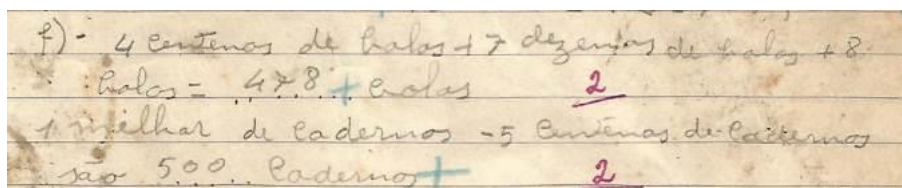 f) - 4 centenas de bolas + 7 dezenas de bolas + 8
bolas = 478 + bolas 2
1 milhar de cadernos - 5 centenas de cadernos
são 500 cadernos + 2